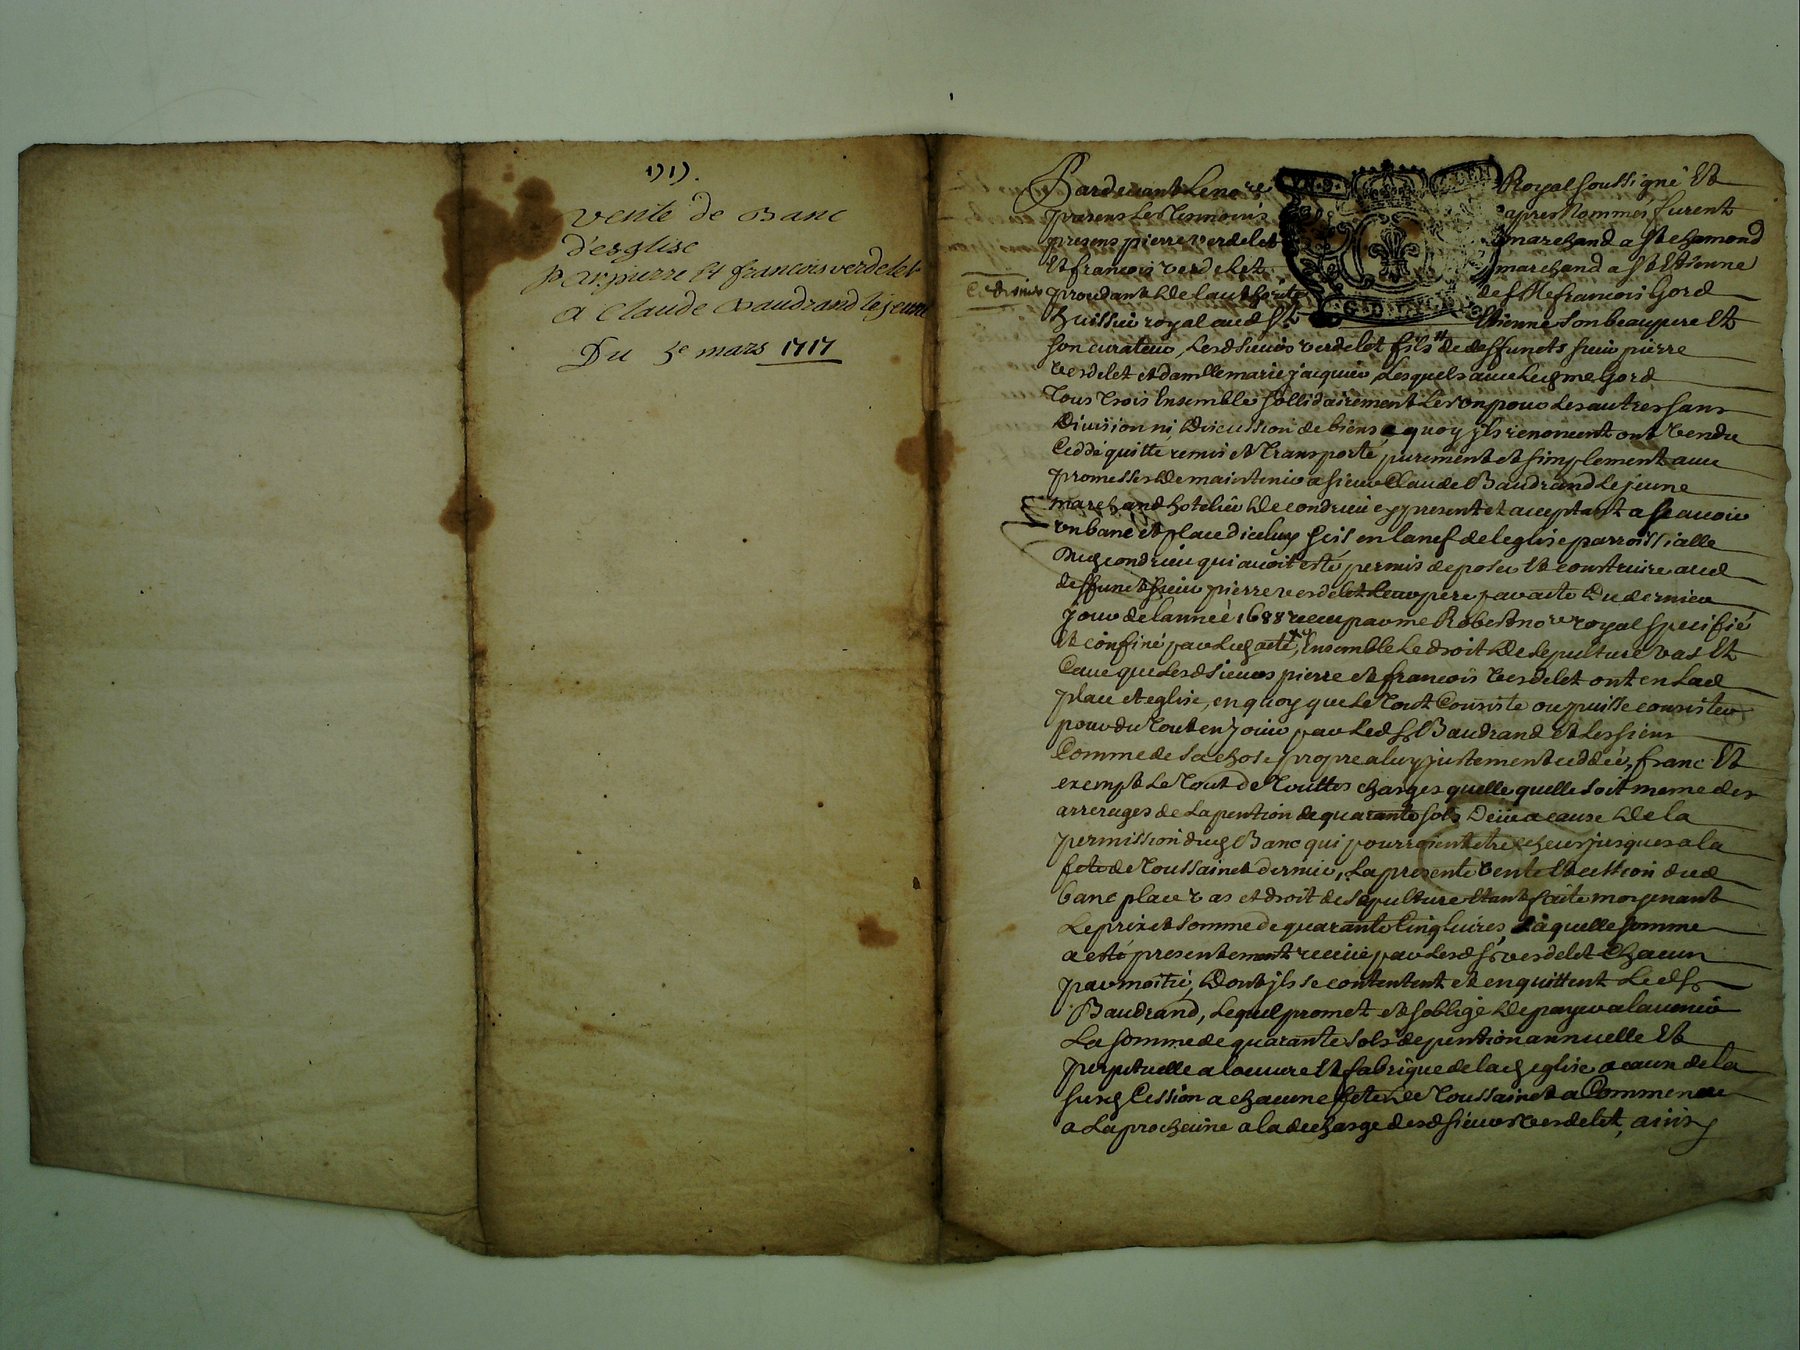 1717.
vente de Banc
d'esglise
Par pierre et francois verdelet
a Claude Baudrand le jeune
Du 5e mars 1717
Pardevant Le nore Royal soussigné Et
parens Les Tesmoins apres Nommes furent
presens pierre verdelet marchand a St chamond
Et francois verdelet marchand a St Etienne
Ce dernier procedant De l'authorité de sr Me francois Gord
huissier royal aud St Etienne son beaupere Et
son curateur, Lesd sieurs verdelet fils de deffunets sieur pierre
verdelet et damlle marie jacquier, Lesquels avec Led me Gord
Tous Trois Ensemble sollidairement L'un pour Les autres sans
Division ni Discussion de biens a quoy jls renoncent ont Vendu
Ceddé quitté remis et Transporté purement et simplement avec
promesses De maintenir a sieur Claude Baudrand Le jeune
marchand hotelier De condrieu cy present et acceptant a scavoir
un banc et place d'iceluy scis en la nef de leglise parroissialle
dud condrieu qui avoit esté permis de poser Et construire aud
deffunct sieur pierre verdelet Leur pere par acte Du dernier
jour de lanneé 1688 receu par me Robert nore royal speciffié
Et confiné par Led acte, Ensemble Le droit De sepulture vas Et
Cave que Lesd sieurs pierre et francois Verdelet ont en Lad
place et eglise, en quoy que Le Tout Consiste ou puisse consister
pour du Tout en jouir par Led sr Baudrand Et Les siens
Comme de sa chose propre a luy justement ceddeé, franc Et
exempt Le Tout de Touttes charges quelle quelle soit meme des
arrerages de La pention de quarante sols Deüe a cause De la
permission dud Banc qui pourroient etre echeus jusques a la
fete de Toussainct dernier, La presente Vente Et cession dud
banc place vas et droit de sepulture Etant faite moyenant
Le prix et somme de quarante Cinq Livres, Laquelle somme
a esté presentement receüe par Lesd srs verdelet Chacun
par moitié, Dont jls se contentent et en quittent Led sr
Baudrand, Lequel promet et soblige De payer a lavenir
La somme de quarante sols de pention annuelle Et
perpetuelle a loeuvre Et fabrique de lad eglise a cause de la
susd Cession a chacune fete De Toussainct a Commencer
a La prochaine a la decharge desd sieurs verdelet, ainsy